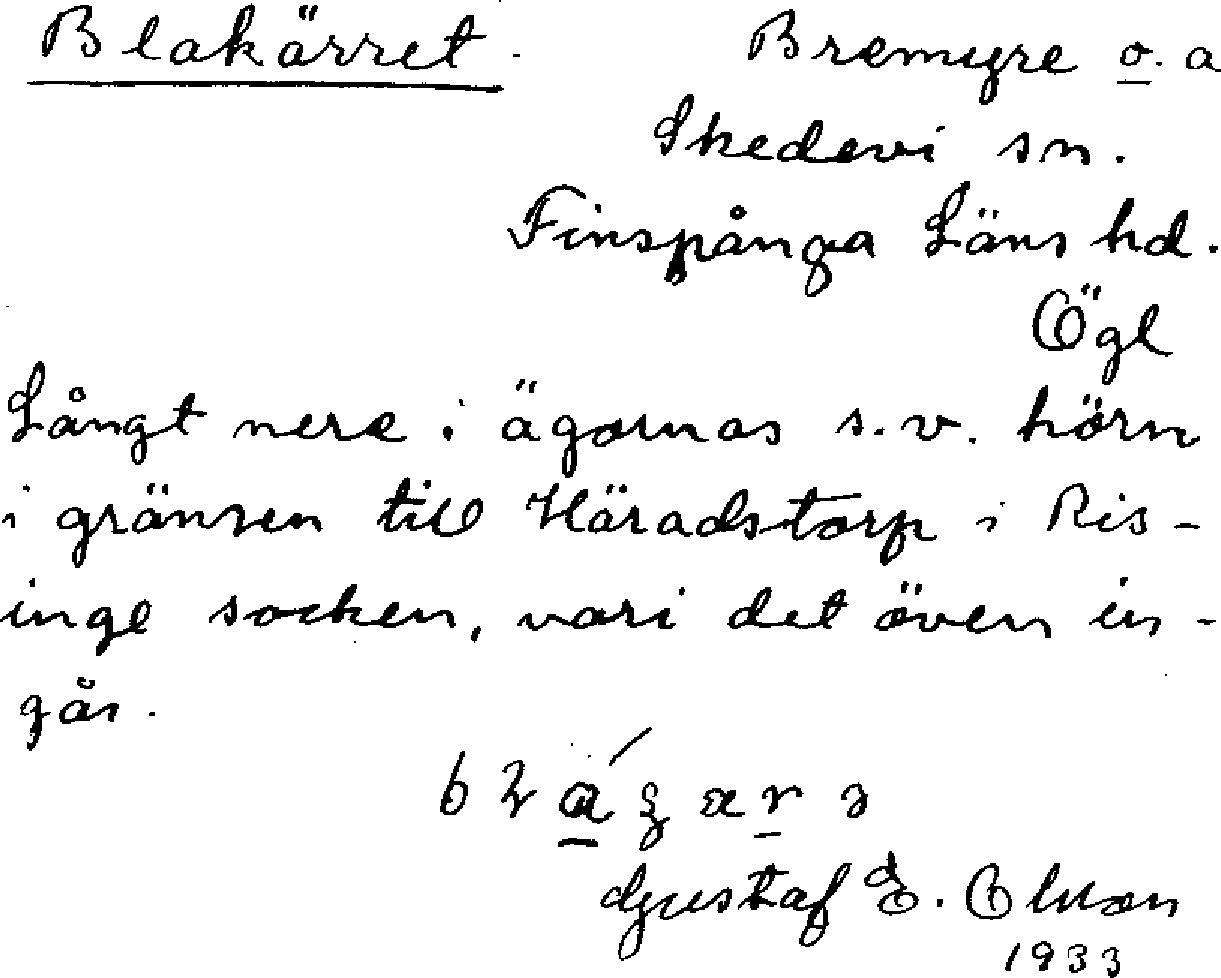 Blakärret. Bremyre o. a
Skedevi sn.
Finspånga Läns hd.
Ögl
Långt nere i ägornas s.v. hörn
i gränsen till Häradstorp i Ris-
inge socken, vari det även in-
går.
Gustaf E.
1933